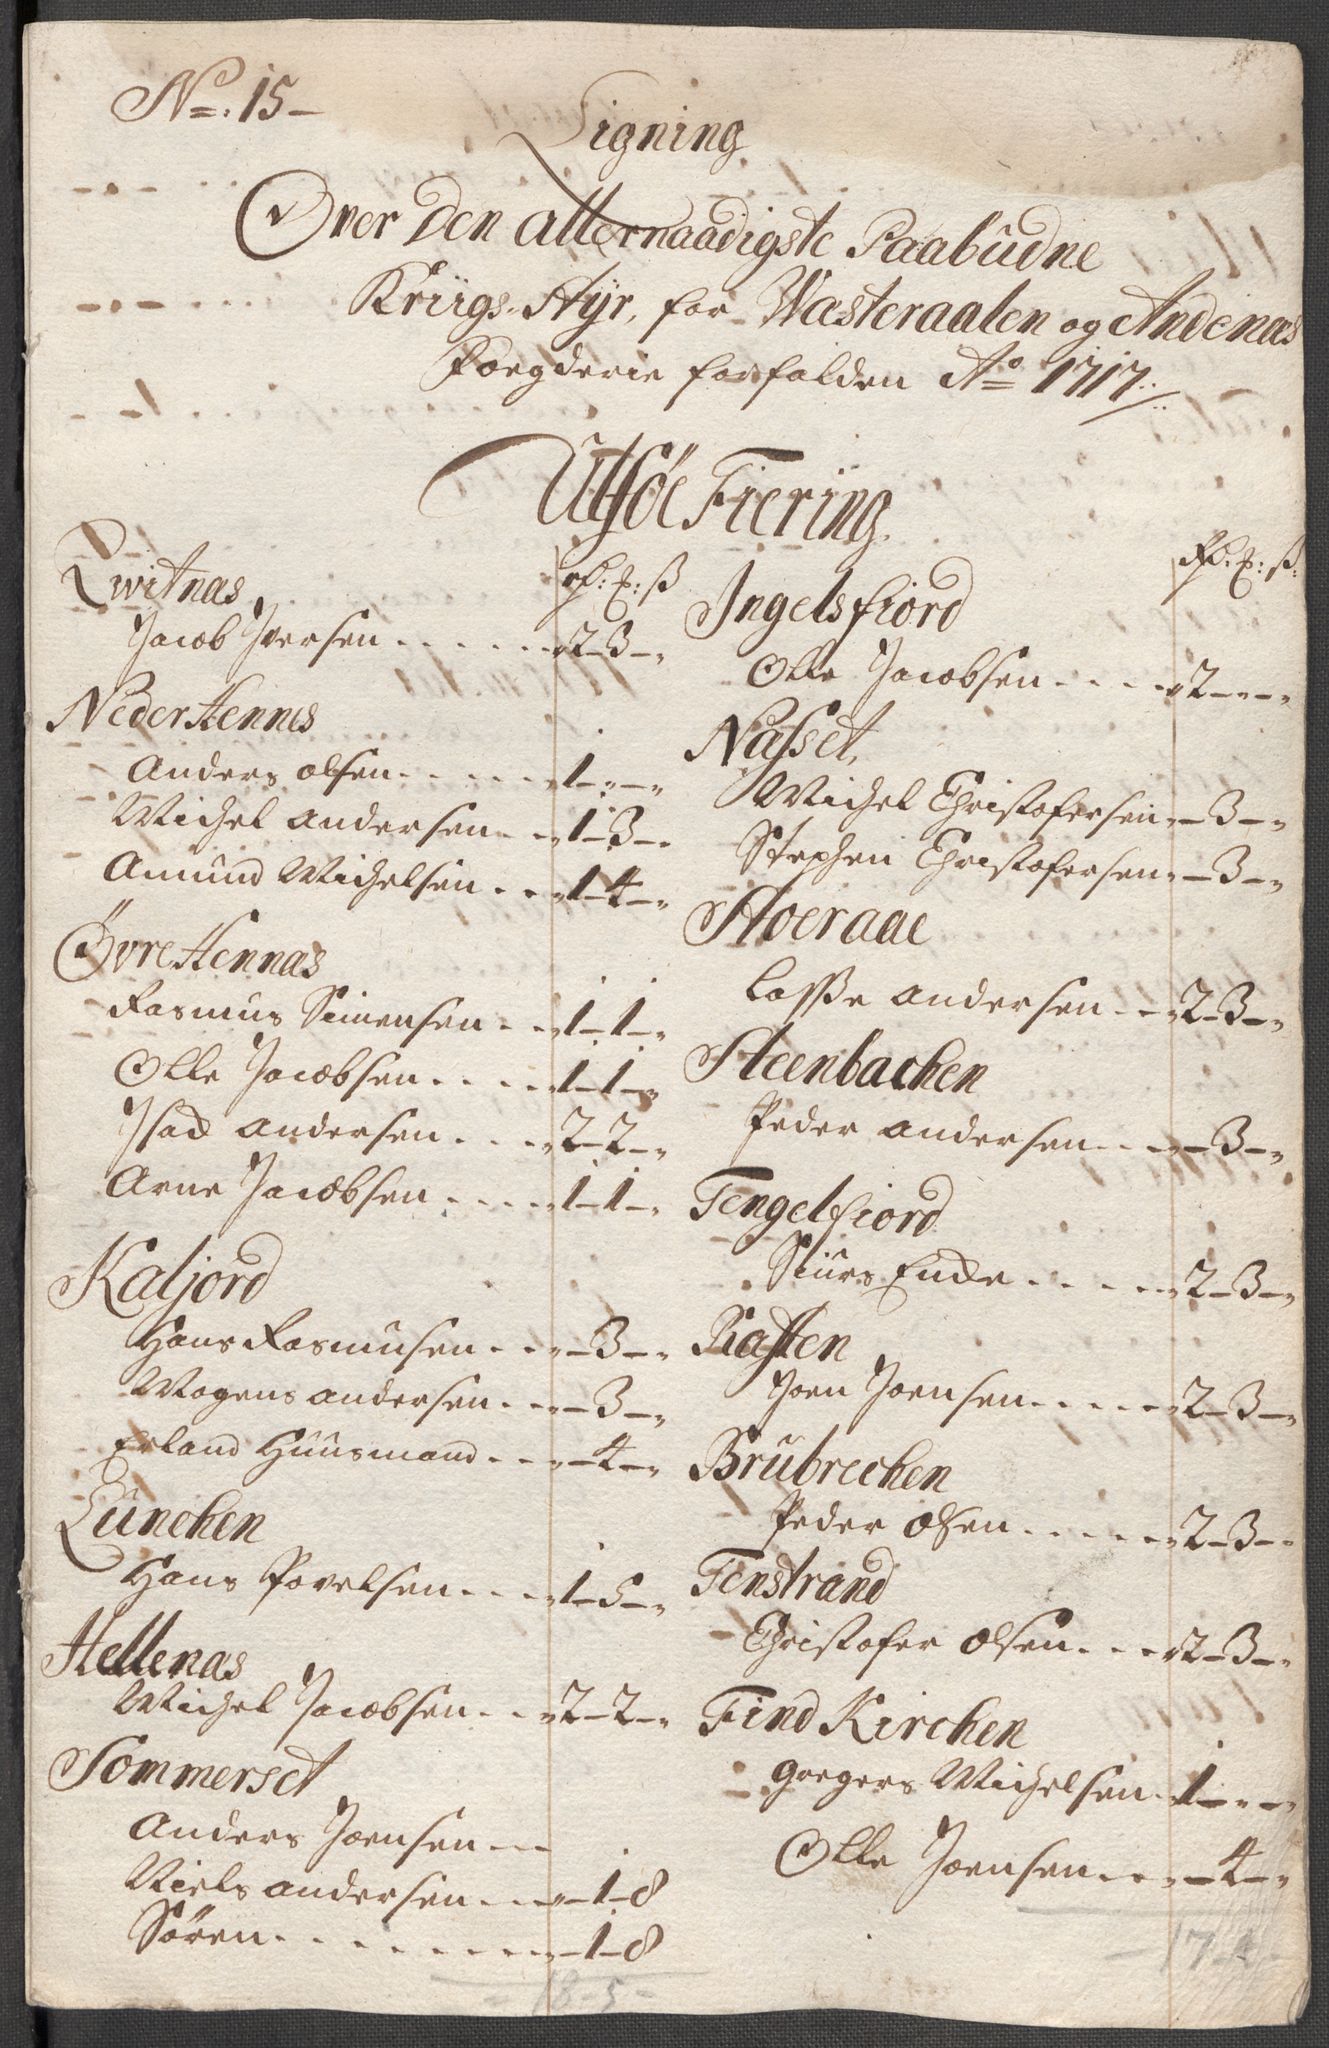 No. 15 -
Ligning
Over Den allernaadigste Paabudne
Kriigs-Styr, for Wæsteraalen og Andenæs
Foegderie forfalden Ao 1717
Utføe Fiering.
Qwitnæs
Jacob Jversen . . . . . . 2 - 3 - "
Neder Hennis
Anders olsen . . . . . 1 - " - "
Michel andersen . . 1 - 3 - "
Amund Michelsen . . . 1 - 4 - "
Övre Hennæs
Rasmus Simensen . . 1 - 1 - "
Olle Jacobsen . . . . . 1 - 1 - "
Isach andersen . . . . 2 - 2 - "
Arne Jacobsen . . . . . 1 - 1 - "
Kaljord
Hans Rasmusen . . . " - 3 - "
Mogens andersen . . . " - 3 - "
Erland Huusmand . . . " - 4 - "
Lünchen
Hans Povelsen . . . . 1 - 5 - "
Hellenæs
Michel Jacobsen . . . 2 - 2 - "
Sommerset
Anders Joensen . . .
Niels andersen . . . " - 1 - 8
Sören . . . . . . . . . " - 1 - 8
18 - 5 -
Ingelsfiord
Olle Jacobsen . . . . . 2 - " - "
Næsset
Michel Christofersen " - 3 - "
Stephen Christofersen " - 3 - "
Stoeraae
Lasse andersen . . . 2 - 3 - "
Steenbachen
Peder andersen . . . " - 3 - "
Tengelfiord
Siurs Encke . . . . . 2 - 3 - "
Raften
Joen Joensen . . . . . 2 - 3 - "
Brübrechen
Peder Olsen . . . . . 2 - 3 - "
Fenstrand
Christofer Olsen . . . 2 - 3 - "
Find Kirchen
Gregers Michelsen . 1 - " - "
Olle Joensen . . . " - 4 - "